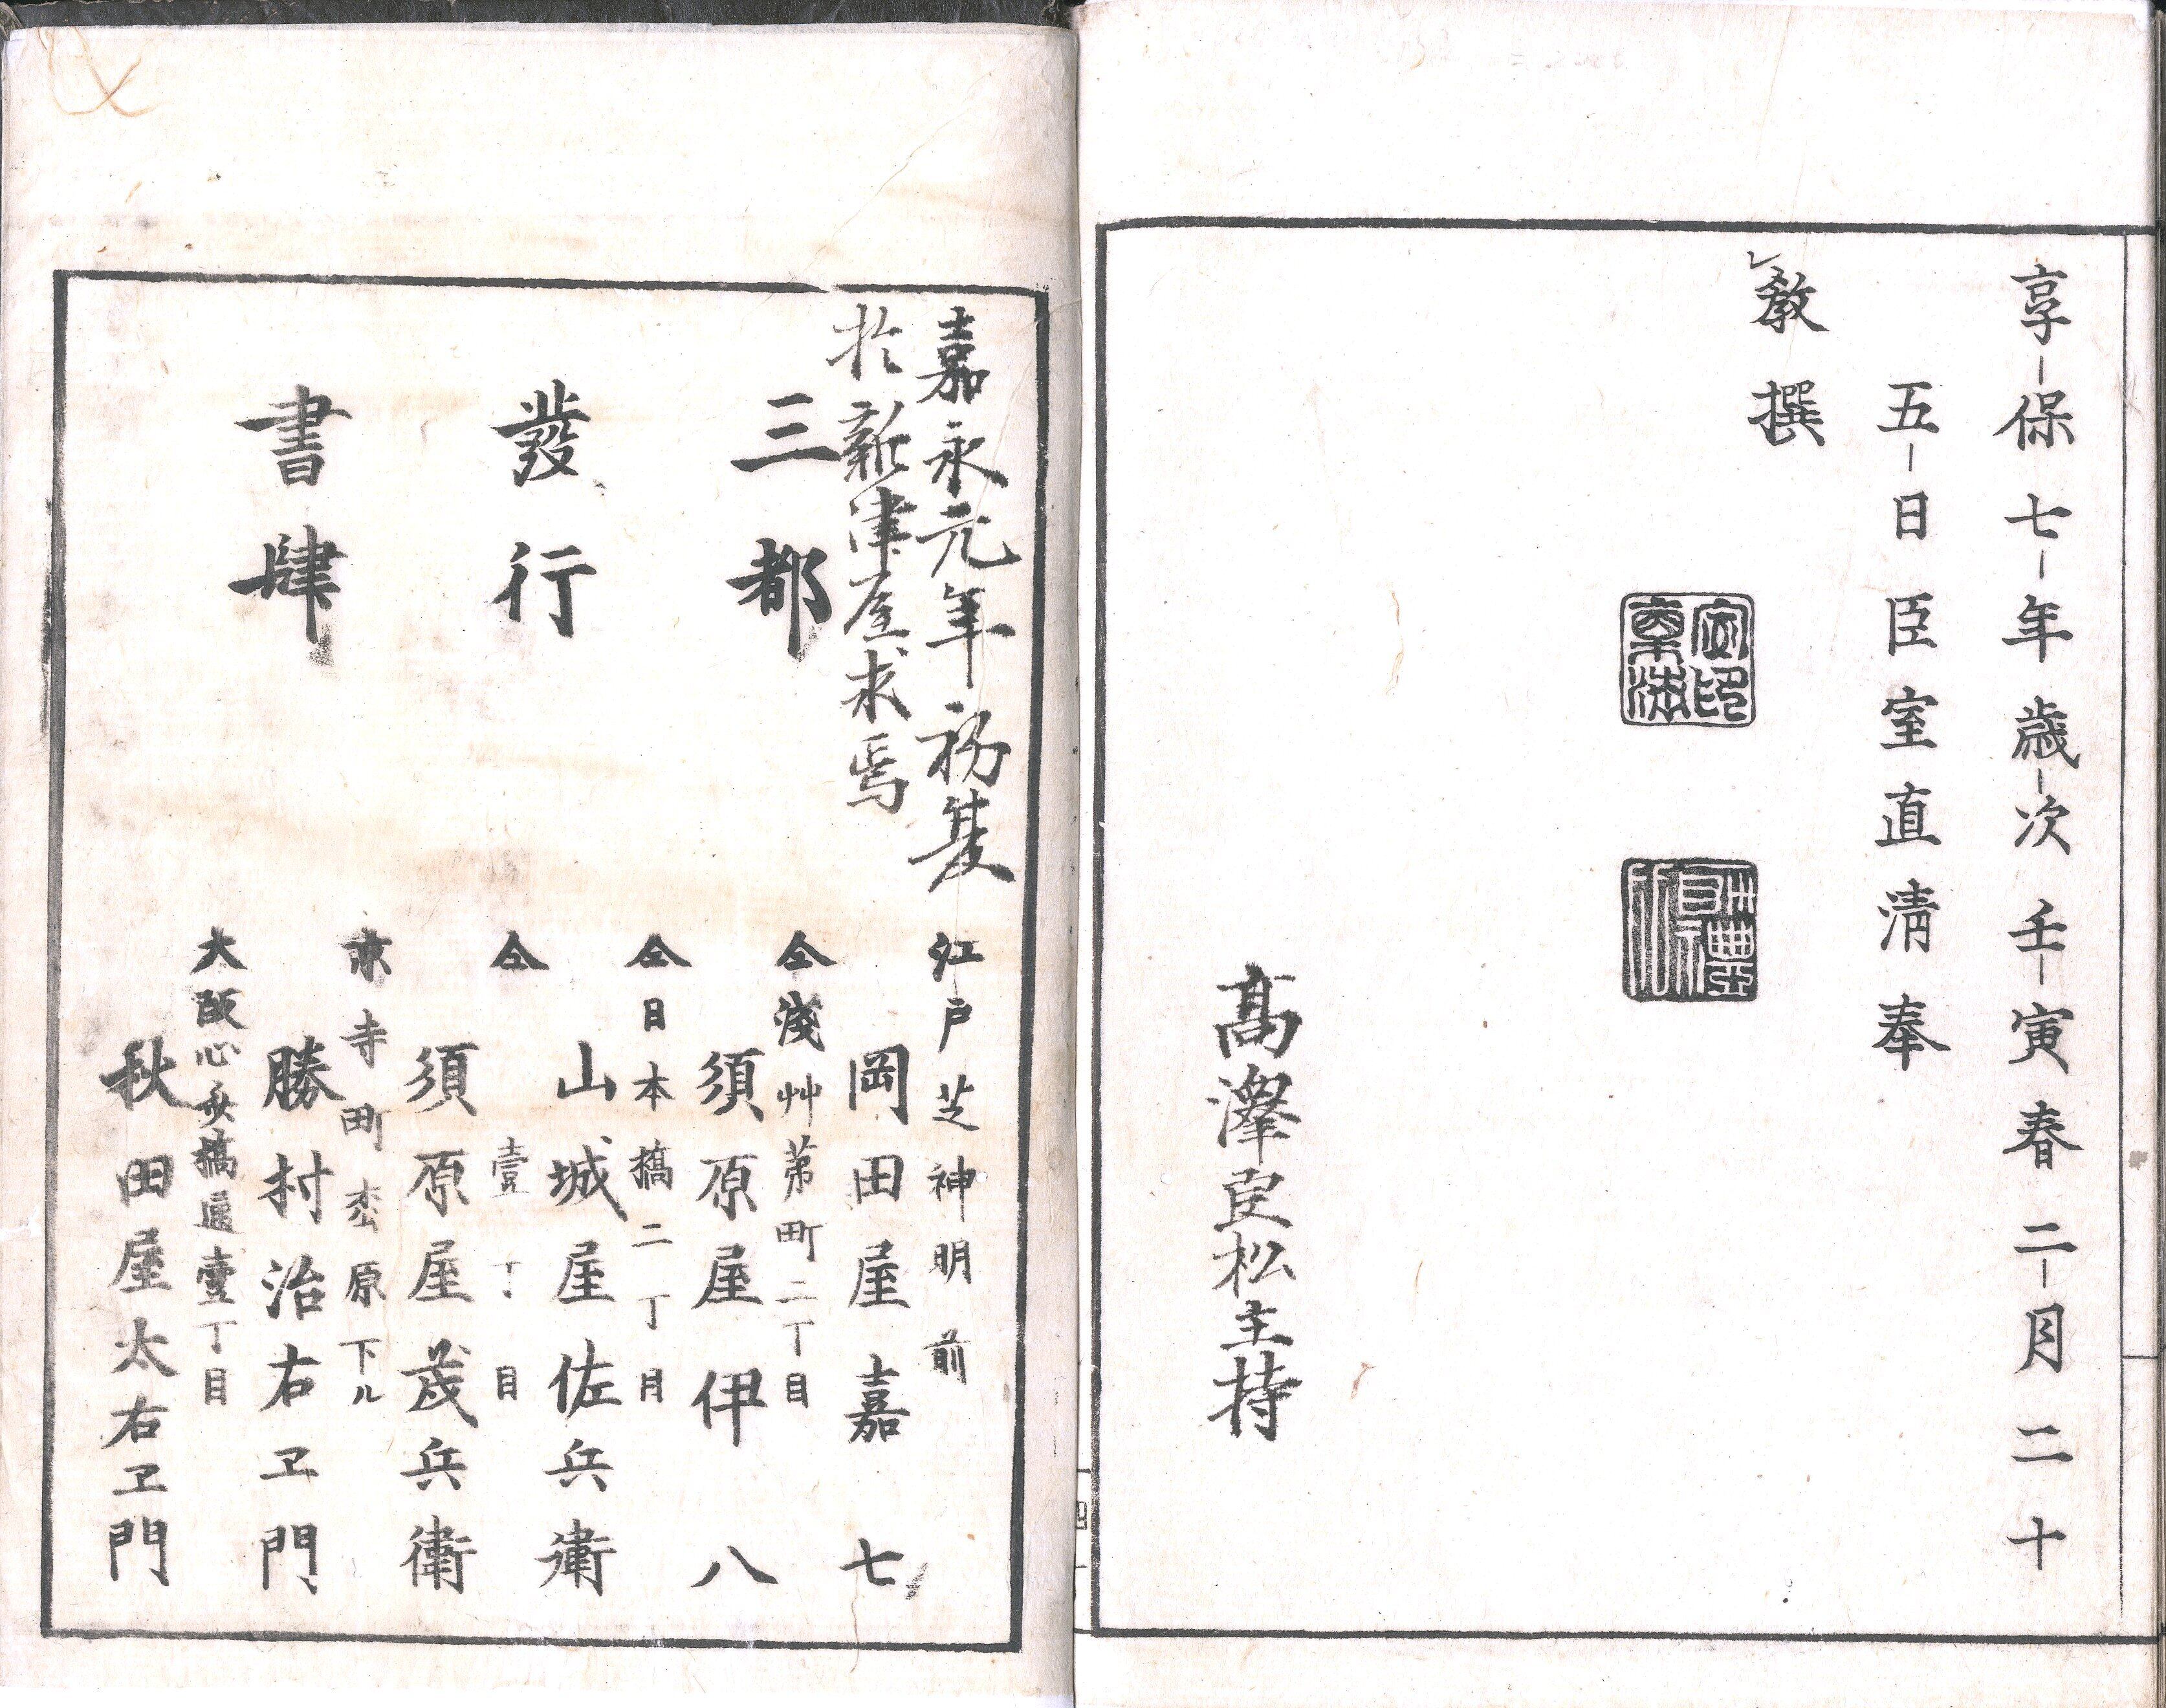 享保七年歳次壬寅春二月二十
五日臣室直清奉
教撰
高澤
松主持
嘉永元年初夏
於新津屋求焉
三都
發行
書肆
江戸芝神明前
岡田屋嘉七
仝淺艸第町二丁目
須原屋伊八
仝日本橋二丁目
山城屋佐兵衛
仝壹丁目
須原屋茂兵衛
京寺町枩原下ル
勝村治右エ門
大阪心斎橋通壹丁目
秋田屋太右エ門